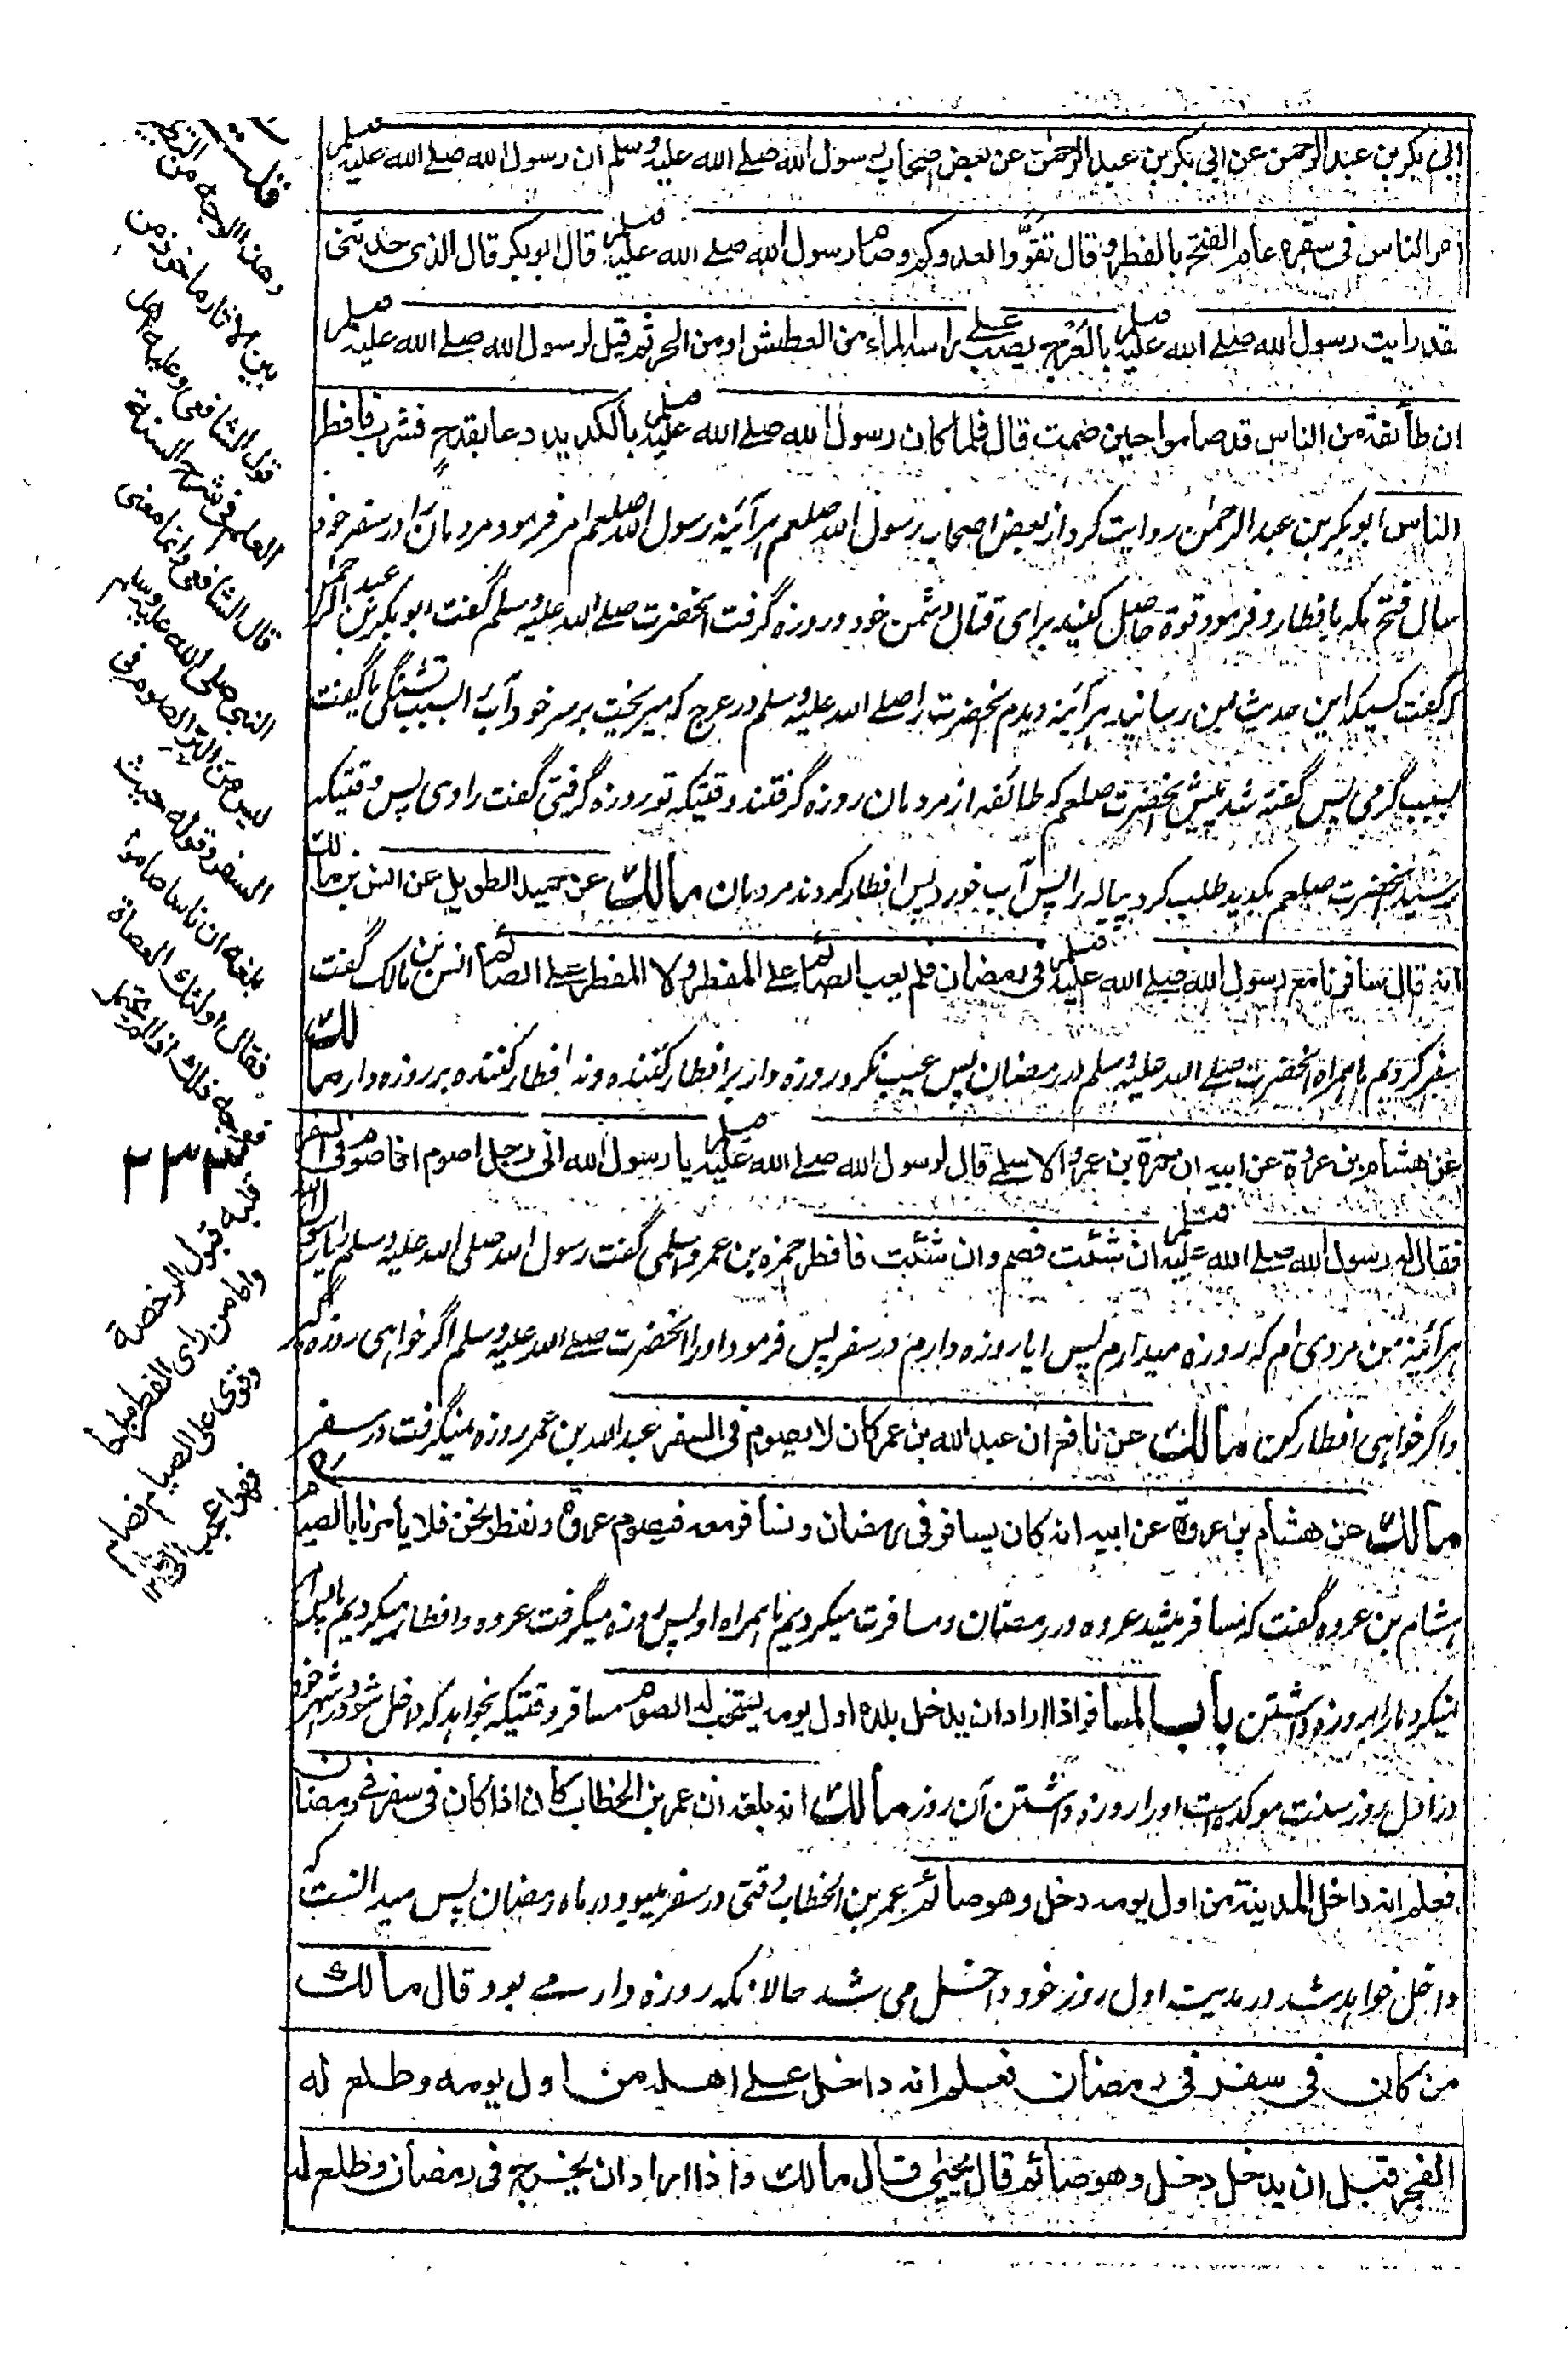 ابی بکر بن عبد الرحمن عن ابی بکر بن عبد الرحمن عن بعض اصحاب رسول الله صلے الله علیه وسلم ان رسول الله صلے الله علیه وسلم
امر الناس فی سفره عام الفتح بالفطر و قال تقوّوا لعدوکم وصام رسول الله صلے الله علیه وسلم قال ابو بکر قال الذی حدثنی
لقد رایت رسول الله صلے الله علیه وسلم بالعرج یصب علے راسه الماء من العطش او من الحر ثم قیل لرسول الله صلے الله علیه وسلم
ان طائفة من الناس قد صاموا حین صمت قال فلما کان رسول الله صلے الله علیه وسلم بالکدید دعا بقدح فشرب فافطر
الناس ابو بکر بن عبد الرحمن روایت کرد از بعض اصحاب رسول الله صلعم هر آئینه رسول الله صلعم امر فرمود مردمان را در سفر خود
سال فتح مکه با فطار و فرمود قوة حاصل کنید برای قتال دشمن خود و روزه گرفت آنحضرت صلے الله علیه وسلم گفت ابو بکر بن عبد الرحمن
که گفت کسیکه این حدیث بمن رسانید هر آئینه دیدم آنحضرت را صلے الله علیه وسلم در عرج که میریخت بر سر خود آب را بسبب تشنگی یا گفت
بسبب گرمی پس گفته شد پیش آنحضرت صلعم که طائفه از مردمان روزه گرفتند وقتیکه تو روزه گرفتی گفت راوی پس وقتیکه
رسید آنحضرت صلعم بکدید طلب کرد پیاله را پس آب خورد پس افطار کردند مردمان مالک عن حمید الطویل عن انس بن مالک
انه قال سافرنا مع رسول الله صلے الله علیه وسلم فی رمضان فلم یعب الصائم علے المفطر و لا المفطر علے الصائم انس بن مالک گفت
سفر کردیم با همراه آنحضرت صلے الله علیه وسلم در رمضان پس عیب نکرد روزه دار بر افطار کننده ونه افطار کننده بر روزه دار مالک
عن هشام بن عروة عن ابیه ان حمزة بن عمرو الاسلے قال لرسول الله صلے الله علیه وسلم یا رسول الله انی رجل اصوم افاصوم فی السفر
فقال له رسول الله صلے الله علیه وسلم ان شئت فصم وان شئت فافطر حمزه بن عمرو اسلمی گفت رسول الله صلی الله علیه وسلم را یا رسول الله
هر آئینه من مردی ام که روزه میدارم پس ایا روزه دارم در سفر پس فرمود او را آنحضرت صلے الله علیه وسلم اگر خواهی روزه بگیر
واگر خواهی افطار کن مالک عن نافع ان عبد الله بن عمر کان لا یصوم فی السفر عبد الله بن عمر روزه نمیگرفت در سفر
مالک عن هشام بن عروة عن ابیه انه کان یسافر فی رمضان ونسافر معه فیصوم عروة ونفطر نحن فلا یأمرنا بالصیام
هشام بن عروه گفت که مسافر میشد عروه در رمضان ومسافرت میکردیم ما همراه او پس روزه میگرفت عروه وافطار میکردیم ما پس امر
نمیکرد مارا بروزه داشتن باب المسافر اذا اراد ان یدخل بلده اول یومه یستحب له الصوم مسافر وقتیکه بخواهد که داخل شود در شهر خود
در اول روز سنت موکده است او را روزه داشتن آن روز مالک انه بلغه ان عمر بن الخطاب کان اذا کان فی سفر فی رمضان
فعلم انه داخل المدینة من اول یومه دخل وهو صائم عمر بن الخطاب وقتی در سفر میبود در ماه رمضان پس میدانست که
داخل خواهد شد در مدینه اول روز خود داخل می شد حالانکه روزه دار مے بود و قال مالک
من کان فی سفر فی رمضان فعلم انه داخل علے اهله من اول یومه وطلع له
الفجر قبل ان یدخل دخل وهو صائم قال یحیی قال مالک واذا اراد ان یخرج فی رمضان وطلع له
قلت
وهذا الاوجه من
بین الاثار ماخوذ من
قول الشافعی وعلیه اهل
العلم فی شرح السنة
قال الشافعی وانما معنی
النبی صلی الله علیه وسلم
لیس من البر الصوم فی
السفر وقوله حیث
بلغه ان ناسا صاموا
فقال اولئک العصاة
فوجه ذلک اذا لم یحتمل
۲۳۳
قلبه قبول الرخصة
واما من رای الفطر مباحا
وقوی علی الصیام فصام
فهو اعجب الی